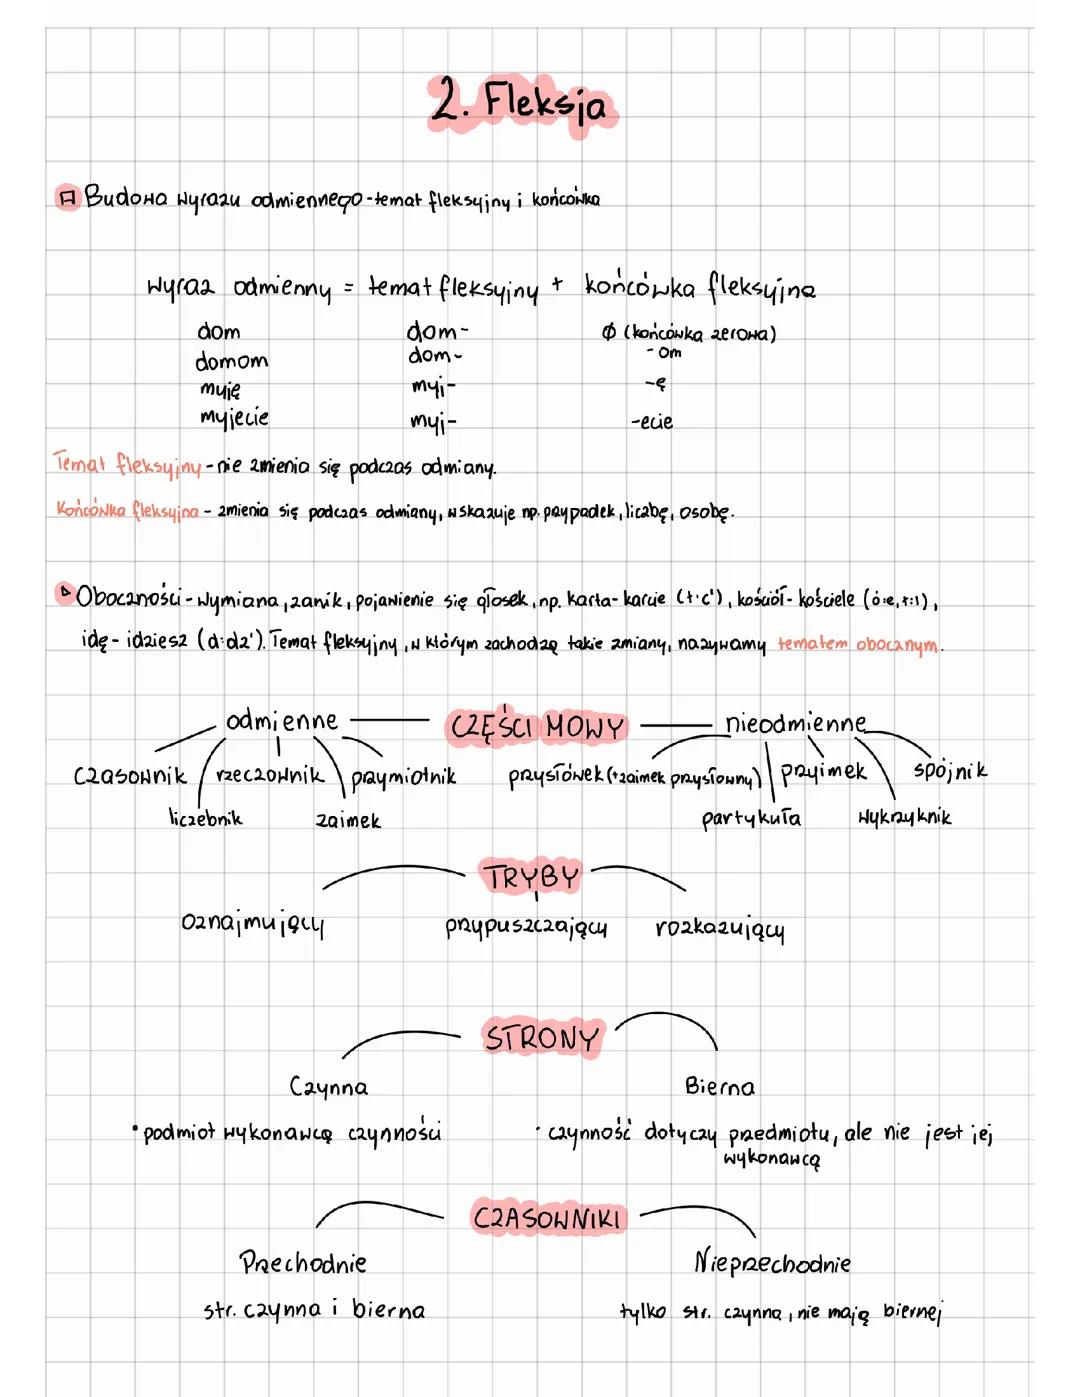 2. Fleksja
Budowa wyrazu odmiennego - temat fleksyjny i końcówka
wyraz odmienny = temat fleksyjny + końcówka fleksyjna
dom dom- Ø (końcówka zerowa)
domom dom- -om
myję myj- -ę
myjecie myj- -ecie
Temat fleksyjny - nie zmienia się podczas odmiany.
Końcówka fleksyjna - zmienia się podczas odmiany, wskazuje np. przypadek, liczbę, osobę.
Oboczności - wymiana, zanik, pojawienie się głosek, np. karta - karcie (t:c'), kościół - kościele (ó:e, ł:l),
idę - idziesz (d:dz'). Temat fleksyjny, w którym zachodzą takie zmiany, nazywamy tematem obocznym.
odmienne CZĘŚCI MOWY nieodmienne
czasownik rzeczownik przymiotnik przysłówek (+zaimek przysłowny) przyimek spójnik
liczebnik zaimek partykuła wykrzyknik
TRYBY
oznajmujący przypuszczający rozkazujący
STRONY
Czynna Bierna
• podmiot wykonawcą czynności · czynność dotyczy przedmiotu, ale nie jest jej
wykonawcą
CZASOWNIKI
Przechodnie Nieprzechodnie
str. czynna i bierna tylko str. czynna, nie mają biernej